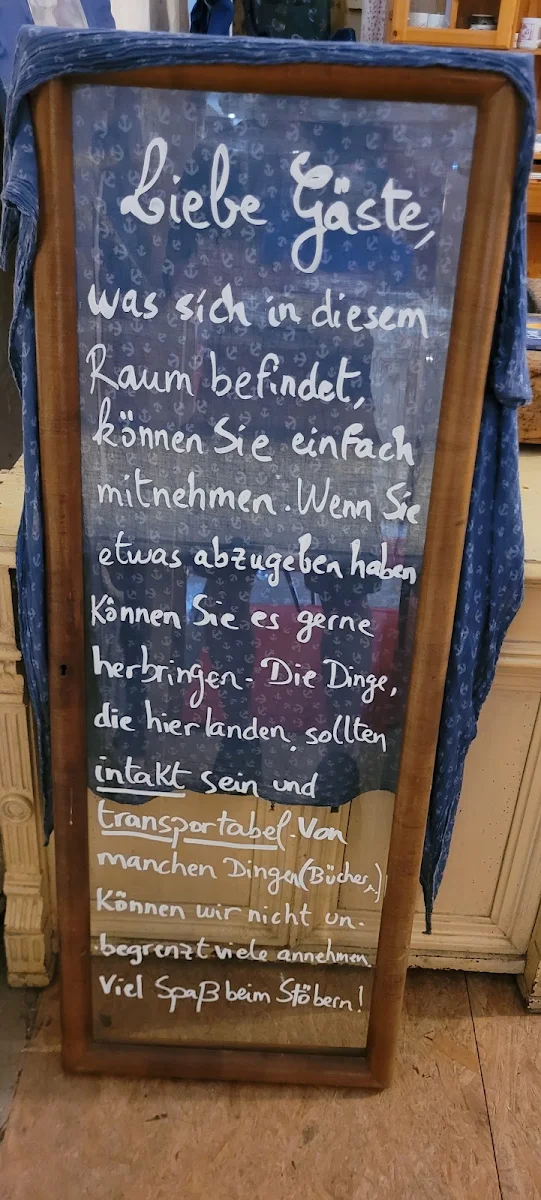 Liebe Gäste,
was sich in diesem
Raum befindet,
können Sie einfach
mitnehmen. Wenn Sie
etwas abzugeben haben
können Sie es gerne
herbringen. Die Dinge,
die hier landen, sollten
intakt sein und
transportabel. Von
manchen Dingen (Bücher,)
können wir nicht un-
begrenzt viele annehmen.
Viel Spaß beim Stöbern!